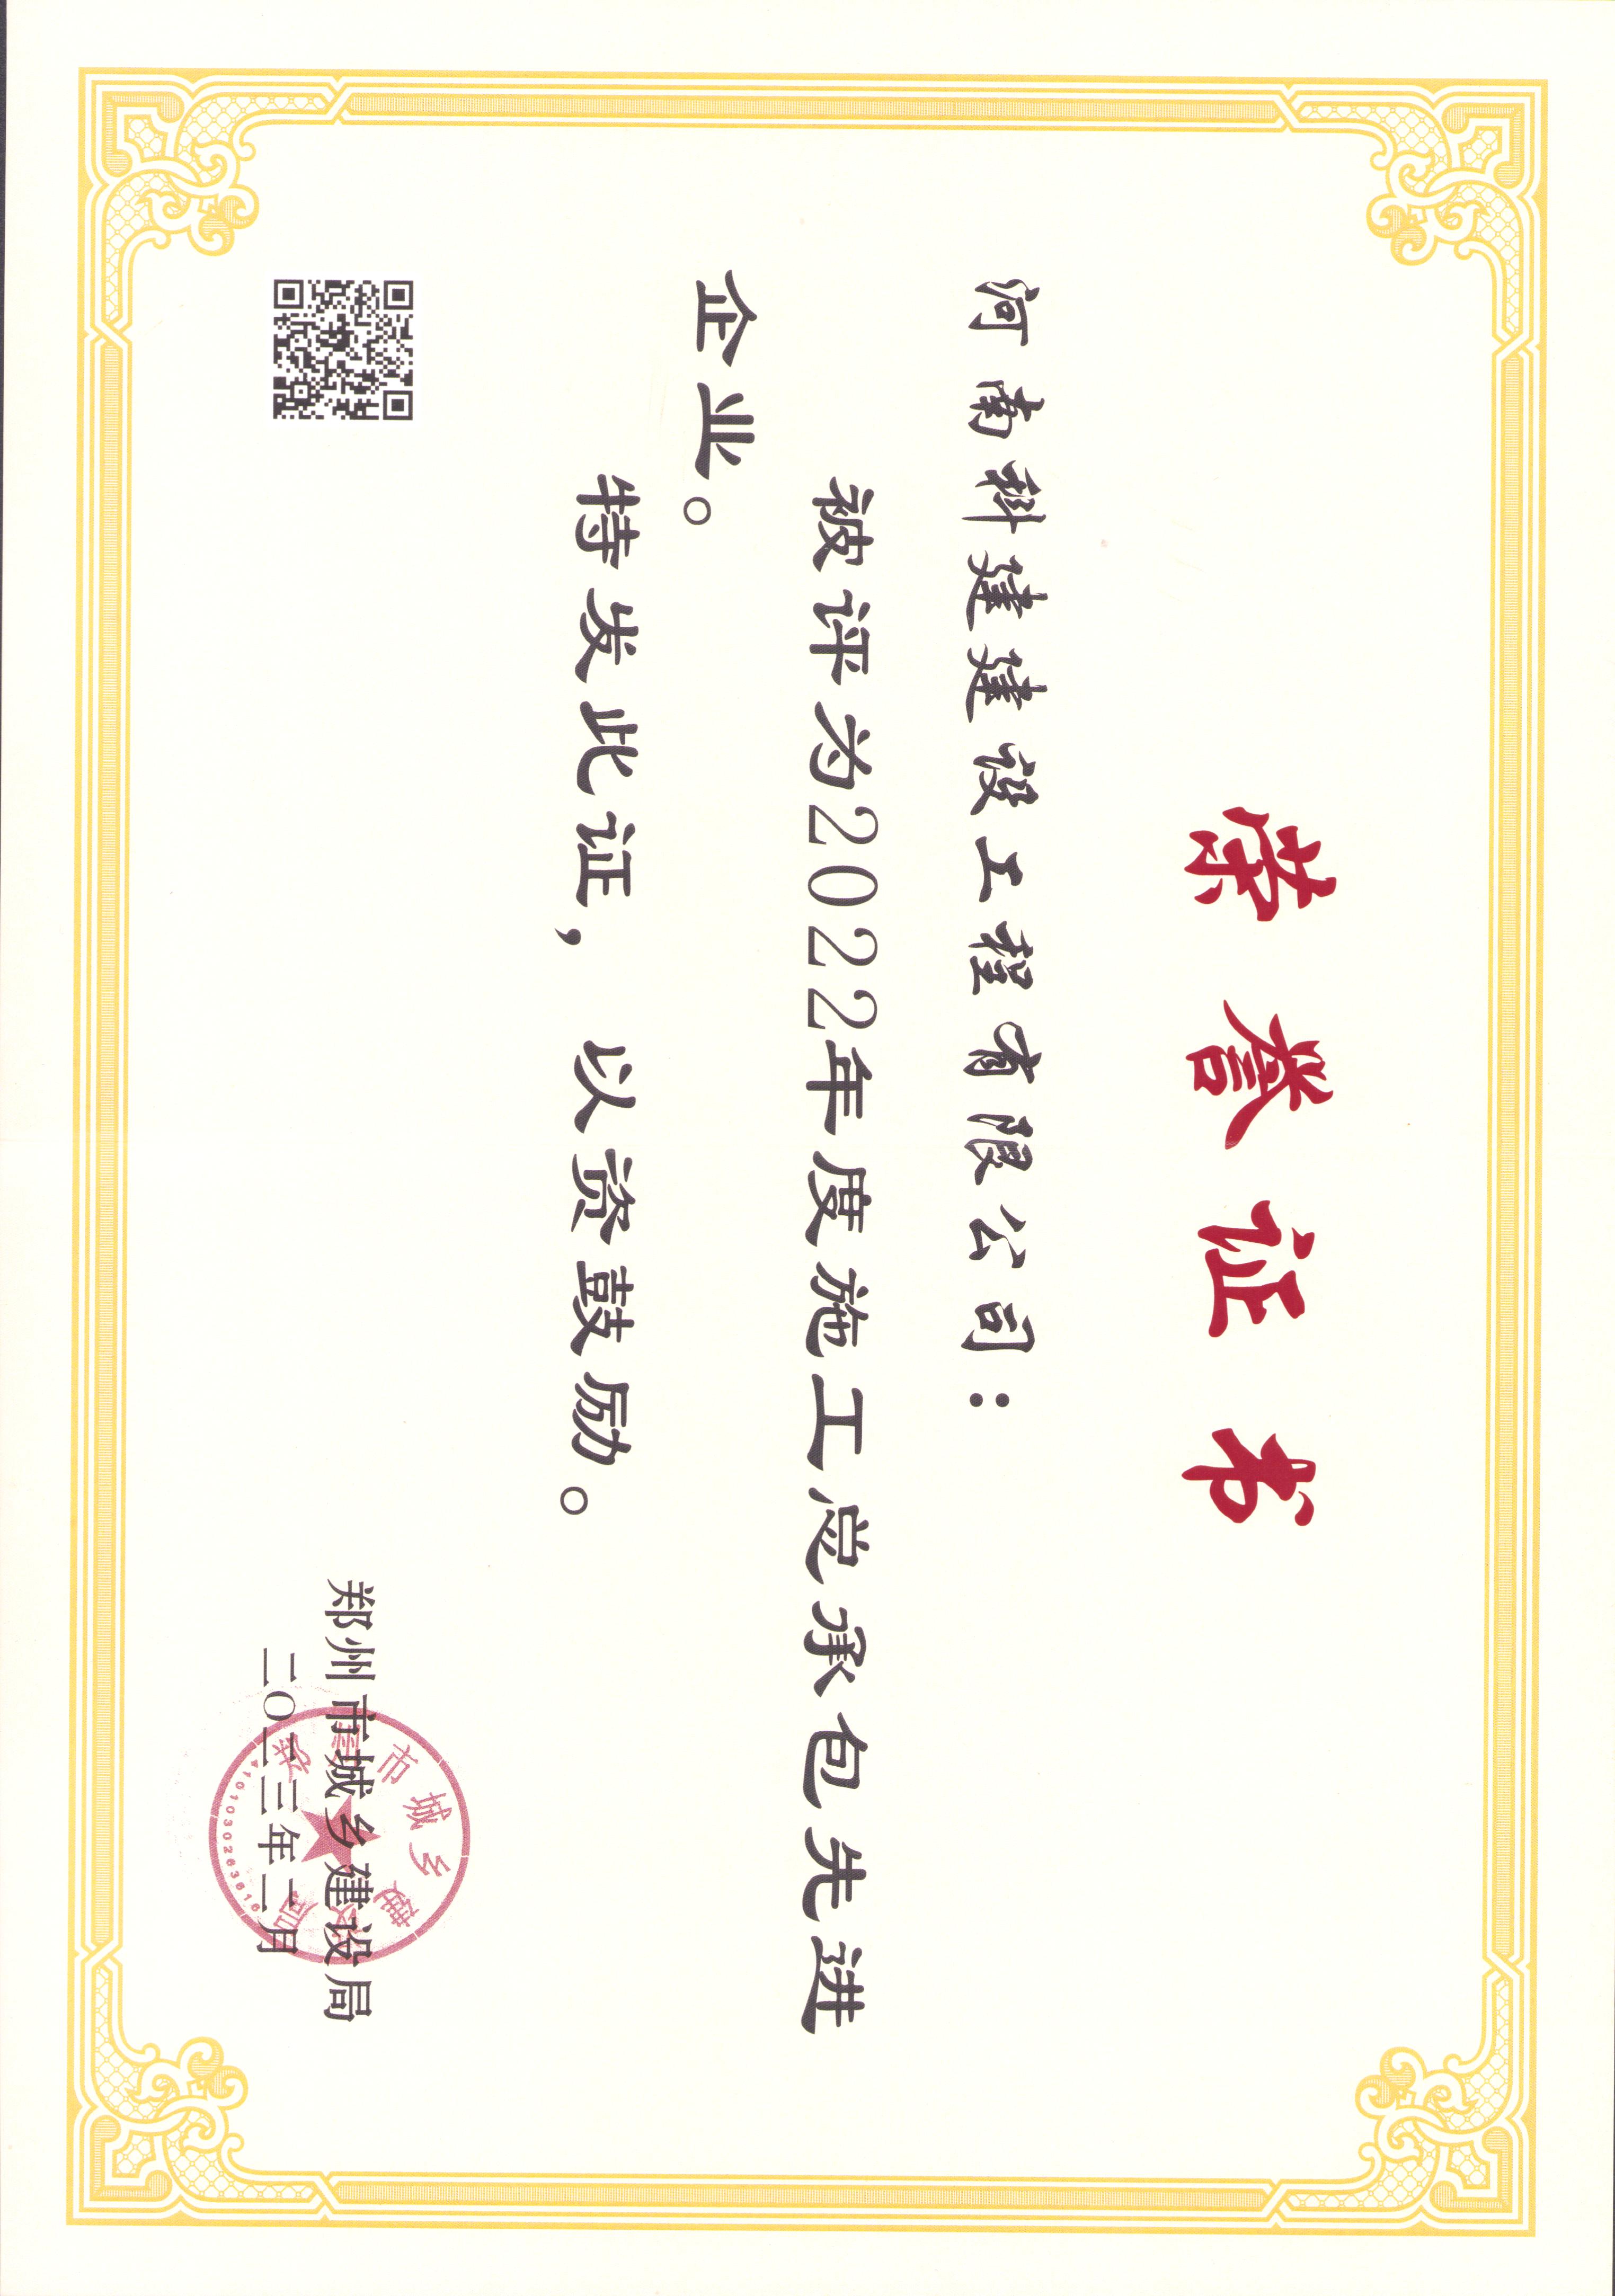 荣誉证书
河南科建建设工程有限公司：
被评为2022年度施工总承包先进
企业。
特发此证，以资鼓励。
郑州市城乡建设局
二〇二三年二月
郑州市城乡建设局
4101030263616